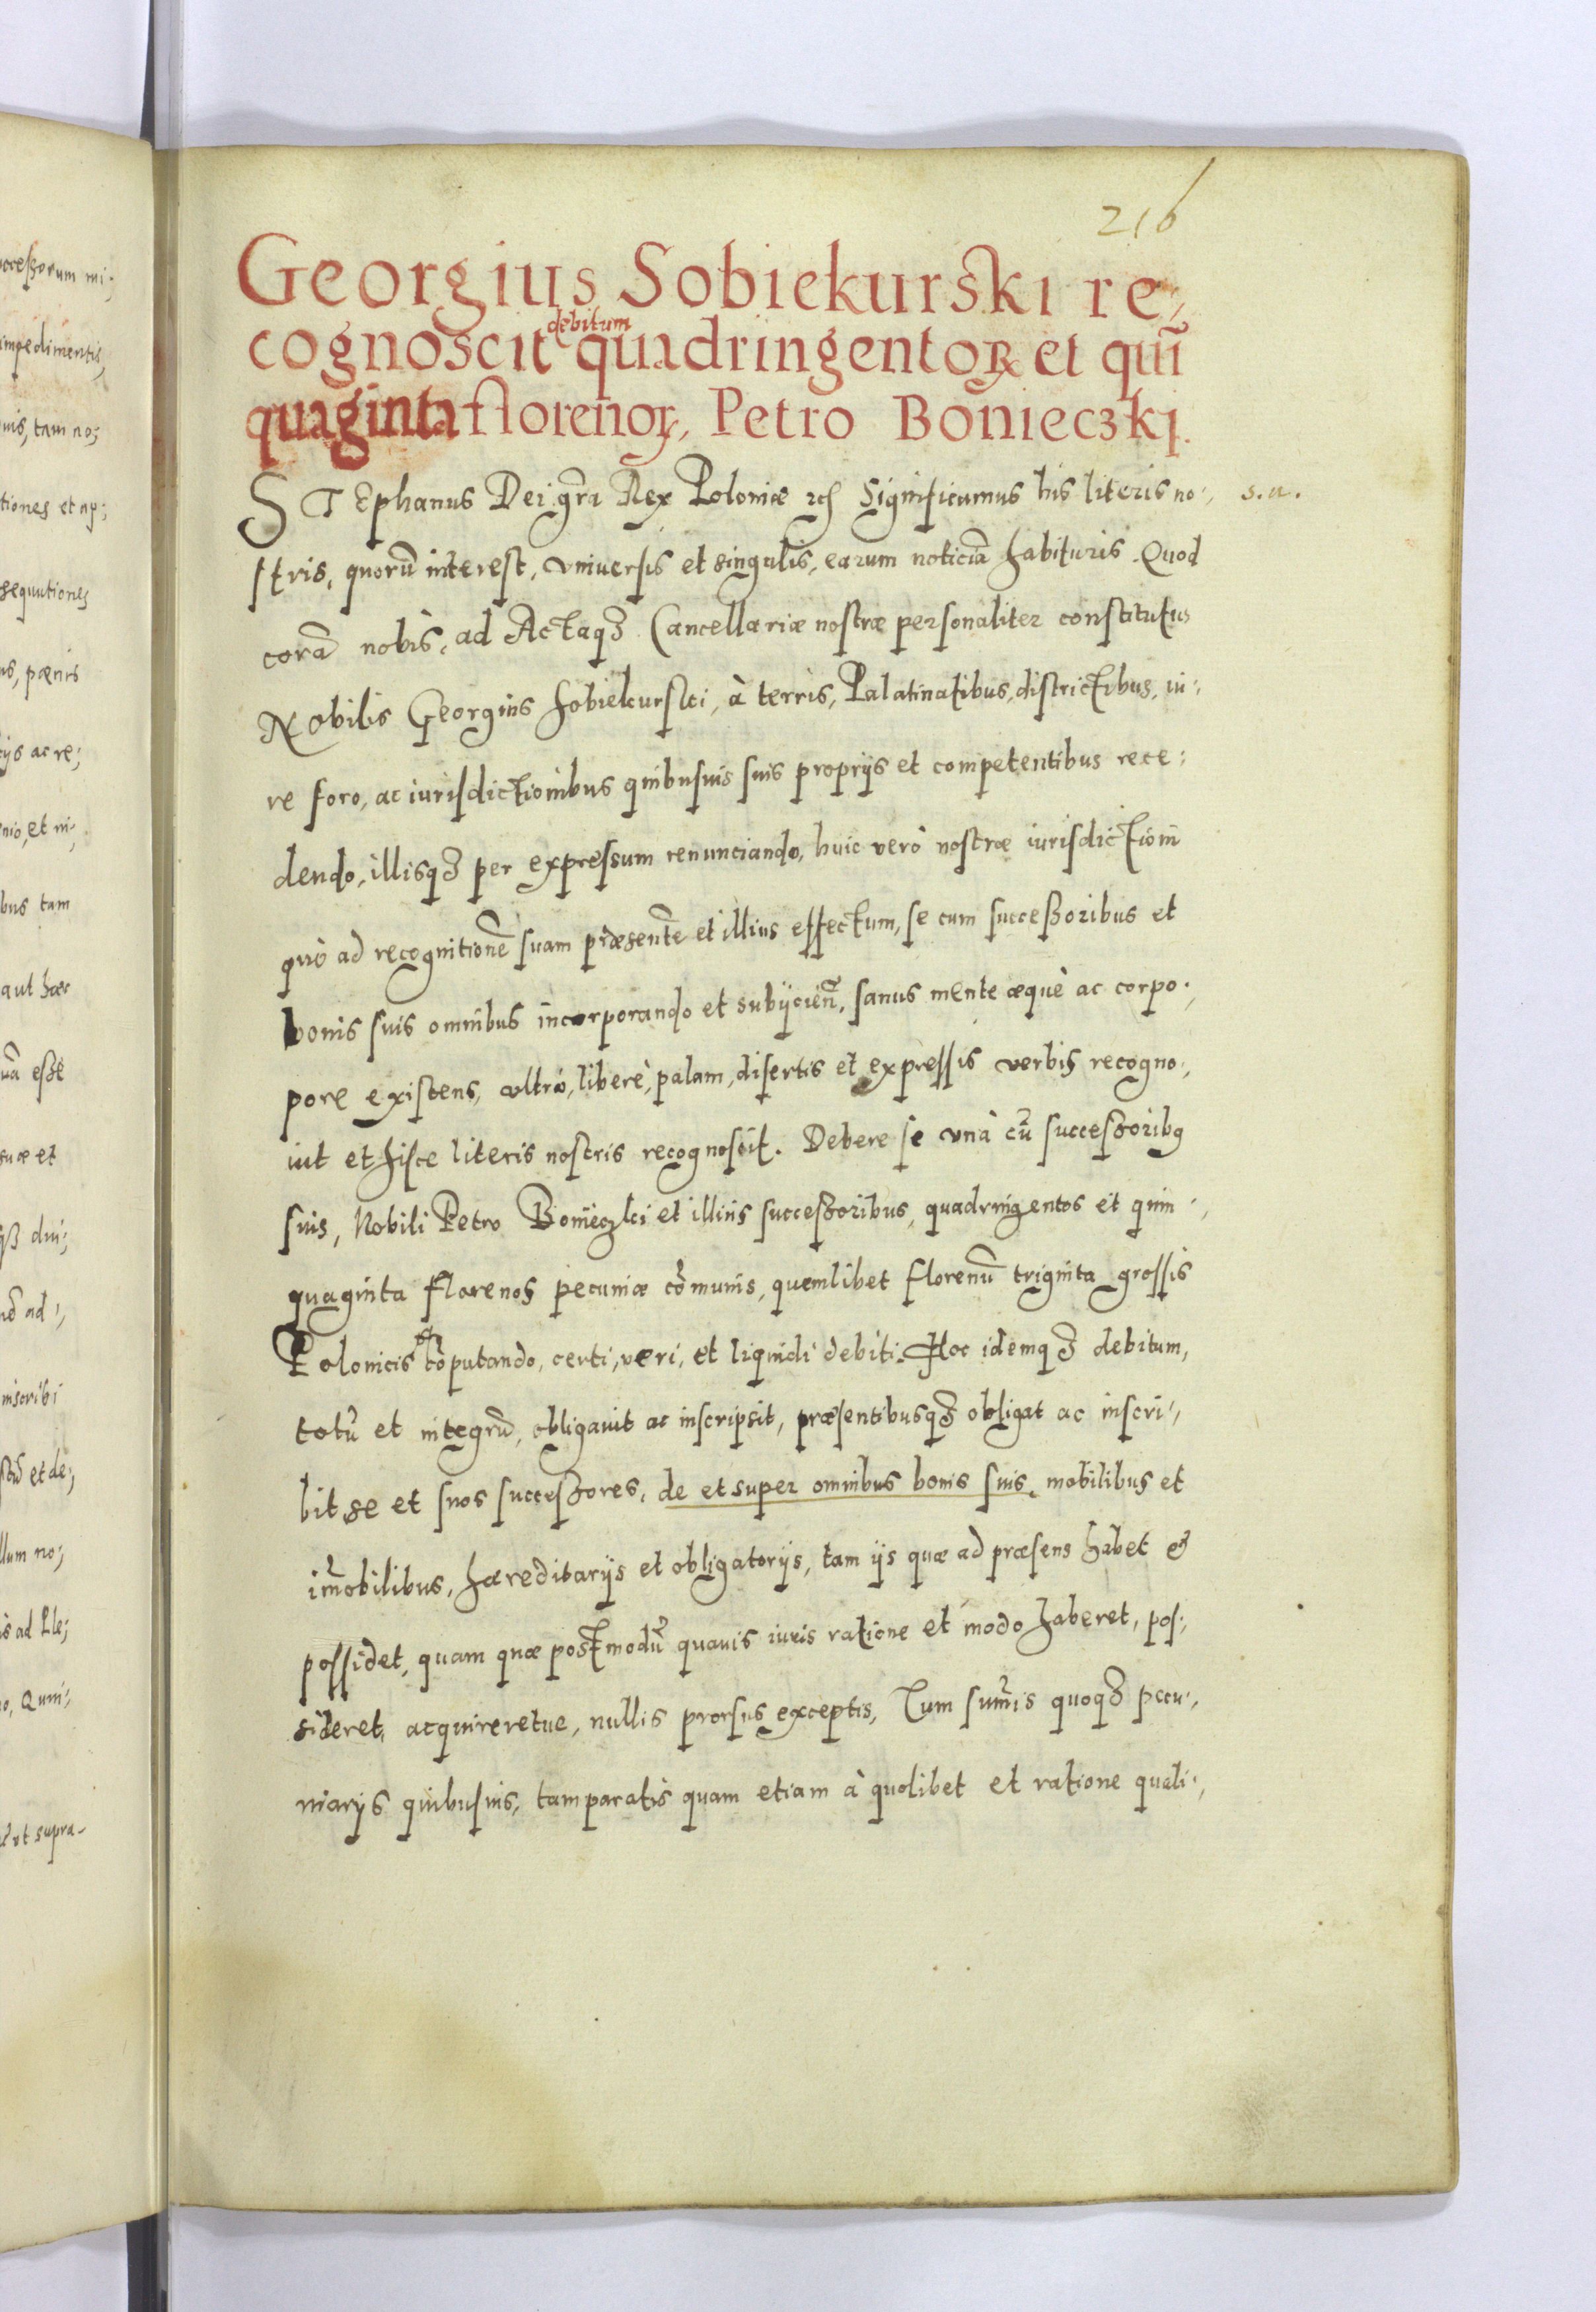 216
Georgius Sobiekurski re,
debitum
cognoscit quadringentoꝝ et quī
quaginta florenoꝝ, Petro Bonieczkj.
STEphanus Dei gr̃a Rex Poloniæ ꝛcꝭ Significamus his literis no,
s. a.
stris, quorū interest, vniuersis et singulis, earum noticiā habituris. Quod
corā nobis, ad Actaqꝫ Cancellariæ nostræ personaliter constitutus
Nobilis Georgius Sobiekurski, à terris, Palatinatibus, districtibus, iu,
re foro, ac iurisdictionibus quibusuis suis proprijs et competentibus rece,
dendo, illisqꝫ per expressum renunciando, huic verò nostræ iurisdictioni
quò ad recognitionē suam præsentē et illius effectum, se cum successoribus et
bonis suis omnibus incorporando et subijcien̄, sanus mente æquè ac corpo,
pore existens, vltrò, liberè, palam, disertis et expressis verbis recogno,
uit et hisce literis nostris recognoscit. Debere se vnà cū successoribꝰ
suis, Nobili Petro Bonieczki et illius successoribus, quadringentos et quin,
quaginta florenos pecuniæ cōmunis, quemlibet florenū triginta grossis
Polonicis cōputando, certi, veri, et liquidi debiti. Hoc idemqꝫ debitum,
totū et integrū, obligauit ac inscripsit, præsentibusqꝫ obligat ac inscri,
bit se et suos successores, de et super omnibus bonis suis, mobilibus et
im̄obilibus, hæreditarijs et obligatorijs, tam ijs quæ ad præsens habet &
possidet, quam quæ postmodū quauis iuris ratione et modo haberet, pos,
sideret, acquireretue, nullis prorsus exceptis, Tum sum̄is quoqꝫ pecu,
niarijs quibusuis, tam paratis quam etiam à quolibet et ratione quali,